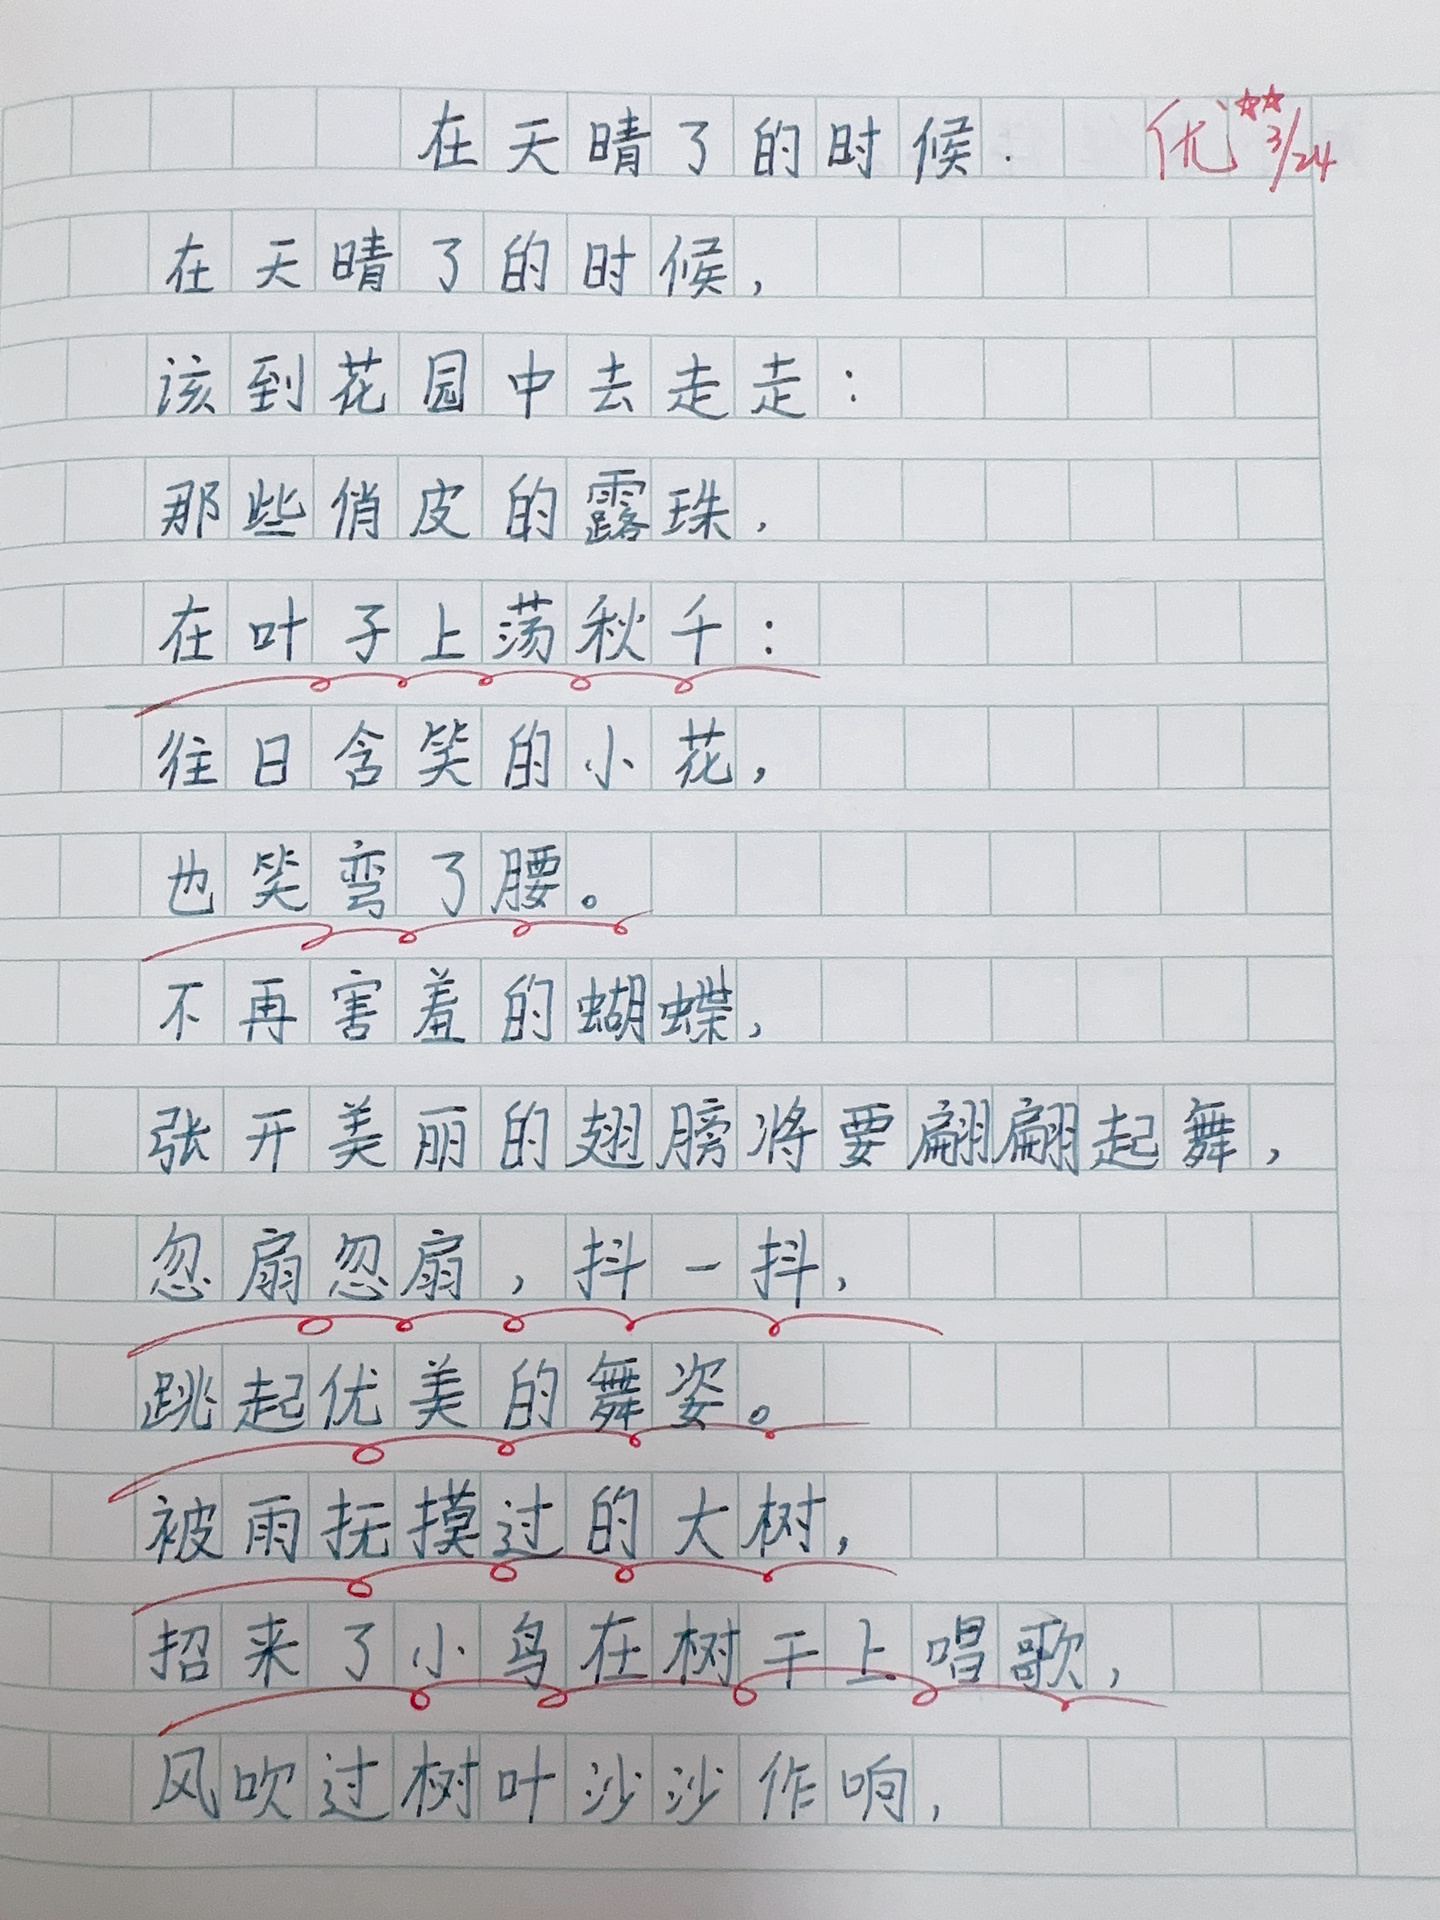 在天晴了的时候. 优 ☆☆ 3/24
在天晴了的时候，
该到花园中去走走：
那些俏皮的露珠，
在叶子上荡秋千：
往日含笑的小花，
也笑弯了腰。
不再害羞的蝴蝶，
张开美丽的翅膀将要翩翩起舞，
忽扇忽扇，抖一抖，
跳起优美的舞姿。
被雨抚摸过的大树，
招来了小鸟在树干上唱歌，
风吹过树叶沙沙作响，